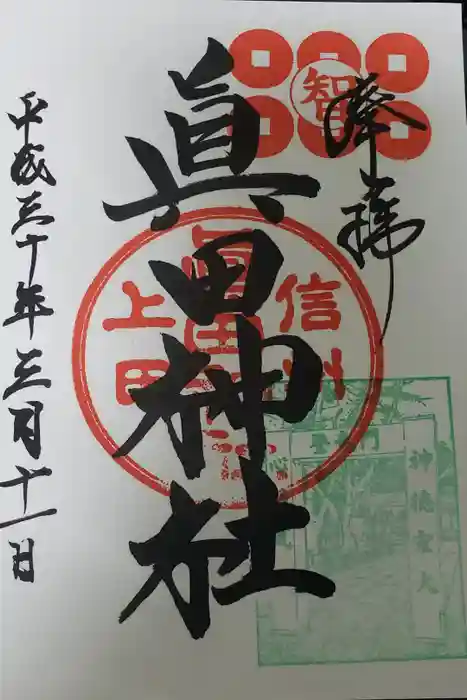 奉拝
智
眞田神社
信州
上田
眞田神社
神徳宏大
平成三十年三月十一日